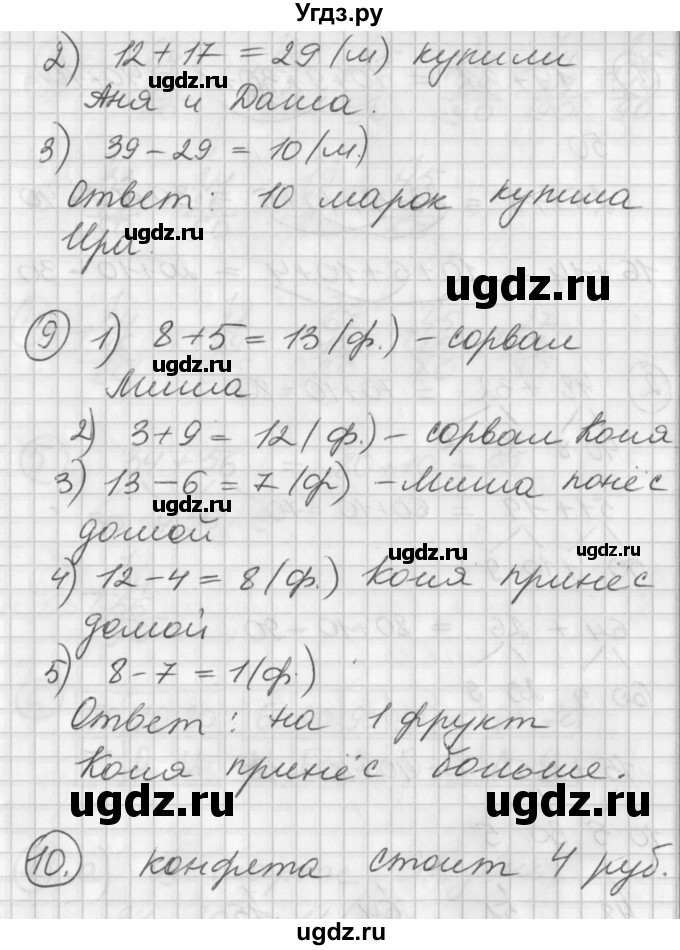 Угдз.ру
2) 12 + 17 = 29 (м) купили
Аня и Даша.
ugdz.ru
3) 39 - 29 = 10 (м.)
Ответ: 10 марок купила
ugdz.ru
Ира.
ugdz.ru
9 1) 8 + 5 = 13 (ф.) - сорвал
ugdz.ru
Миша
2) 3 + 9 = 12 (ф.) - сорвал Коля
3) 13 - 6 = 7 (ф) - Миша понёс
ugdz.ru
домой
ugdz.ru ugdz.ru
4) 12 - 4 = 8 (ф.) Коля принёс
домой
5) 8 - 7 = 1 (ф.)
Ответ: на 1 фрукт
Коля принёс больше.
ugdz.ru ugdz.ru
10. конфета стоит 4 руб.
ugdz.ru